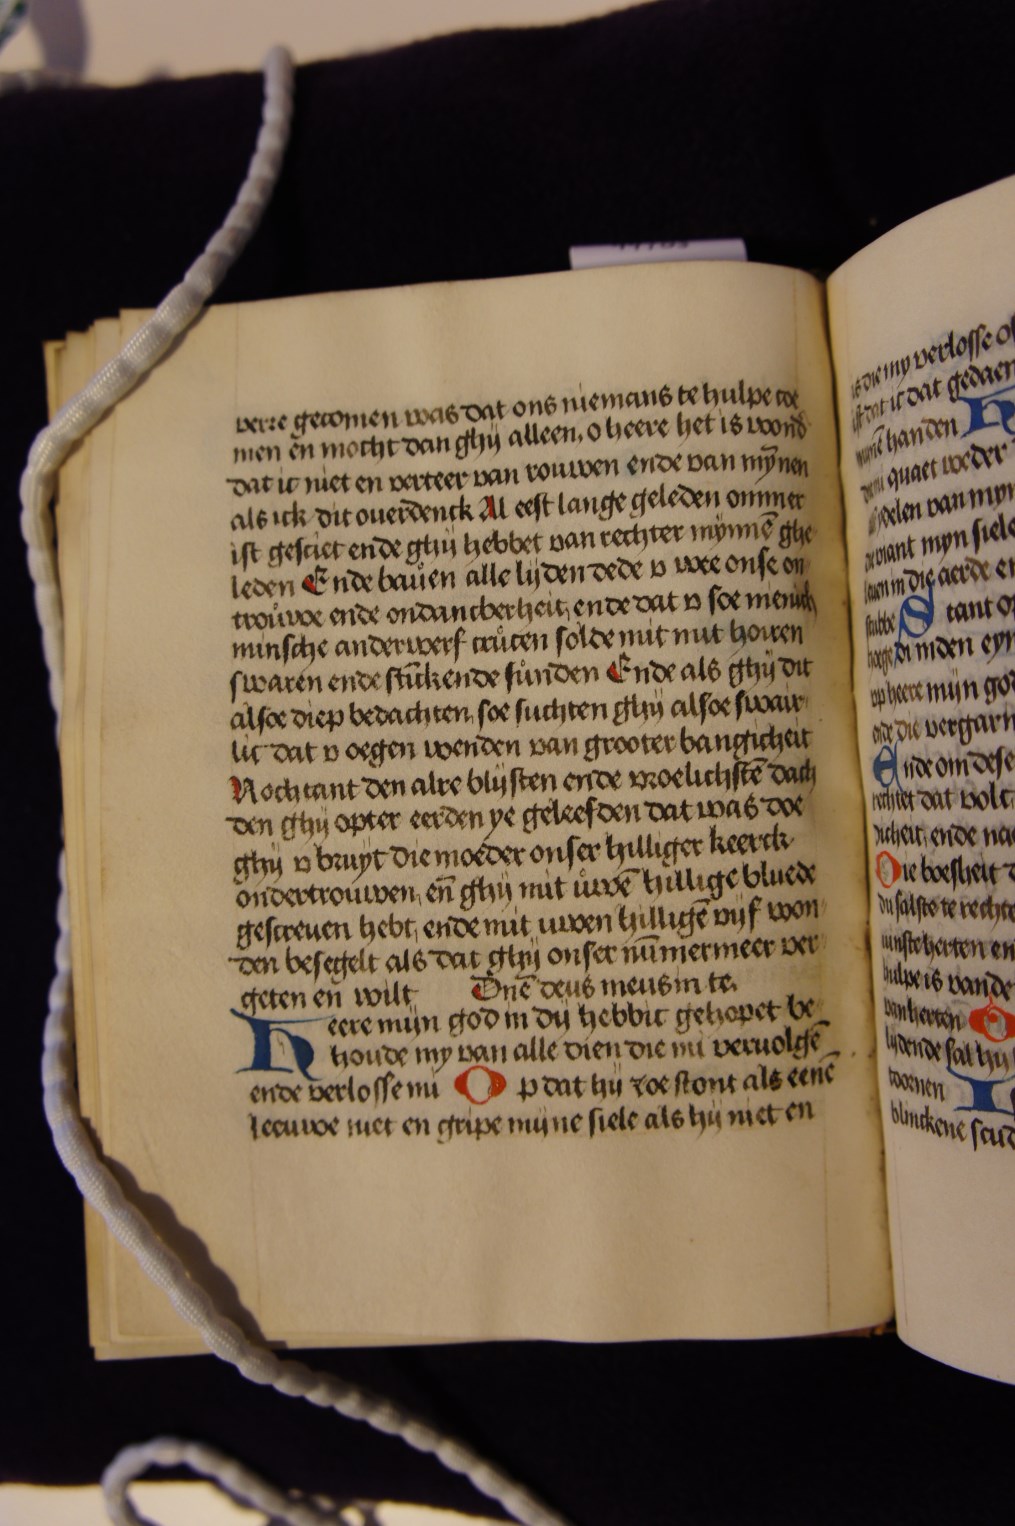 verre gecomen was dat ons niemans te hulpe coe
men en mocht dan ghij alleen, o heere het is wond
dat ic niet en verteer van rouwen ende van mȳnen
als ick dit ouerdenck Al eest lange geleden ommer
ist gesciet ende ghij hebbet van rechter mijnnē ghe
leden Ende bauen alle lijden dede v wee onse on
trouwe ende ondancberheit, ende dat v soe menich
minsche anderwerf crucen solde mit
swaren ende stinkende sunden Ende als ghij dit
alsoe diep bedachten, soe suchten ghij alsoe swair
lic dat v oegen wenden van grooter bangicheit
Nochtant den alre blijsten ende vroelichstē dach
den ghij opter eerden ye geleefden dat was doe
ghij v bruyt die moeder onser hilliger keerck
ondertrouwen, en̄ ghij mit uwē hillige bluede
gescreuen hebt, ende mit uwen hilligē vijf won
den besegelt als dat ghij onser nūmermeer ver
geten en wilt Dn̄e deus meus in te.
Heere mijn god in dij hebbic gehopet be
houde my van alle dien die mi veruolgē
ende verlosse mi Op dat hij zoe stont als eenē
leeuwe niet en gripe mijne siele als hij niet en
die my verlosse
ist dat ic dat gedaen
handen
quaet weder
van myn
want mijn siele
in die aerde
Stant
in den eyn
op heere mijn god
die vergarn
Ende om dese
rechtet dat volc
dicheit, ende na
Die boesheit
te rechte
herten en
hulpe is van de
van herten O
lijdende sal hij
toornen
blinckene